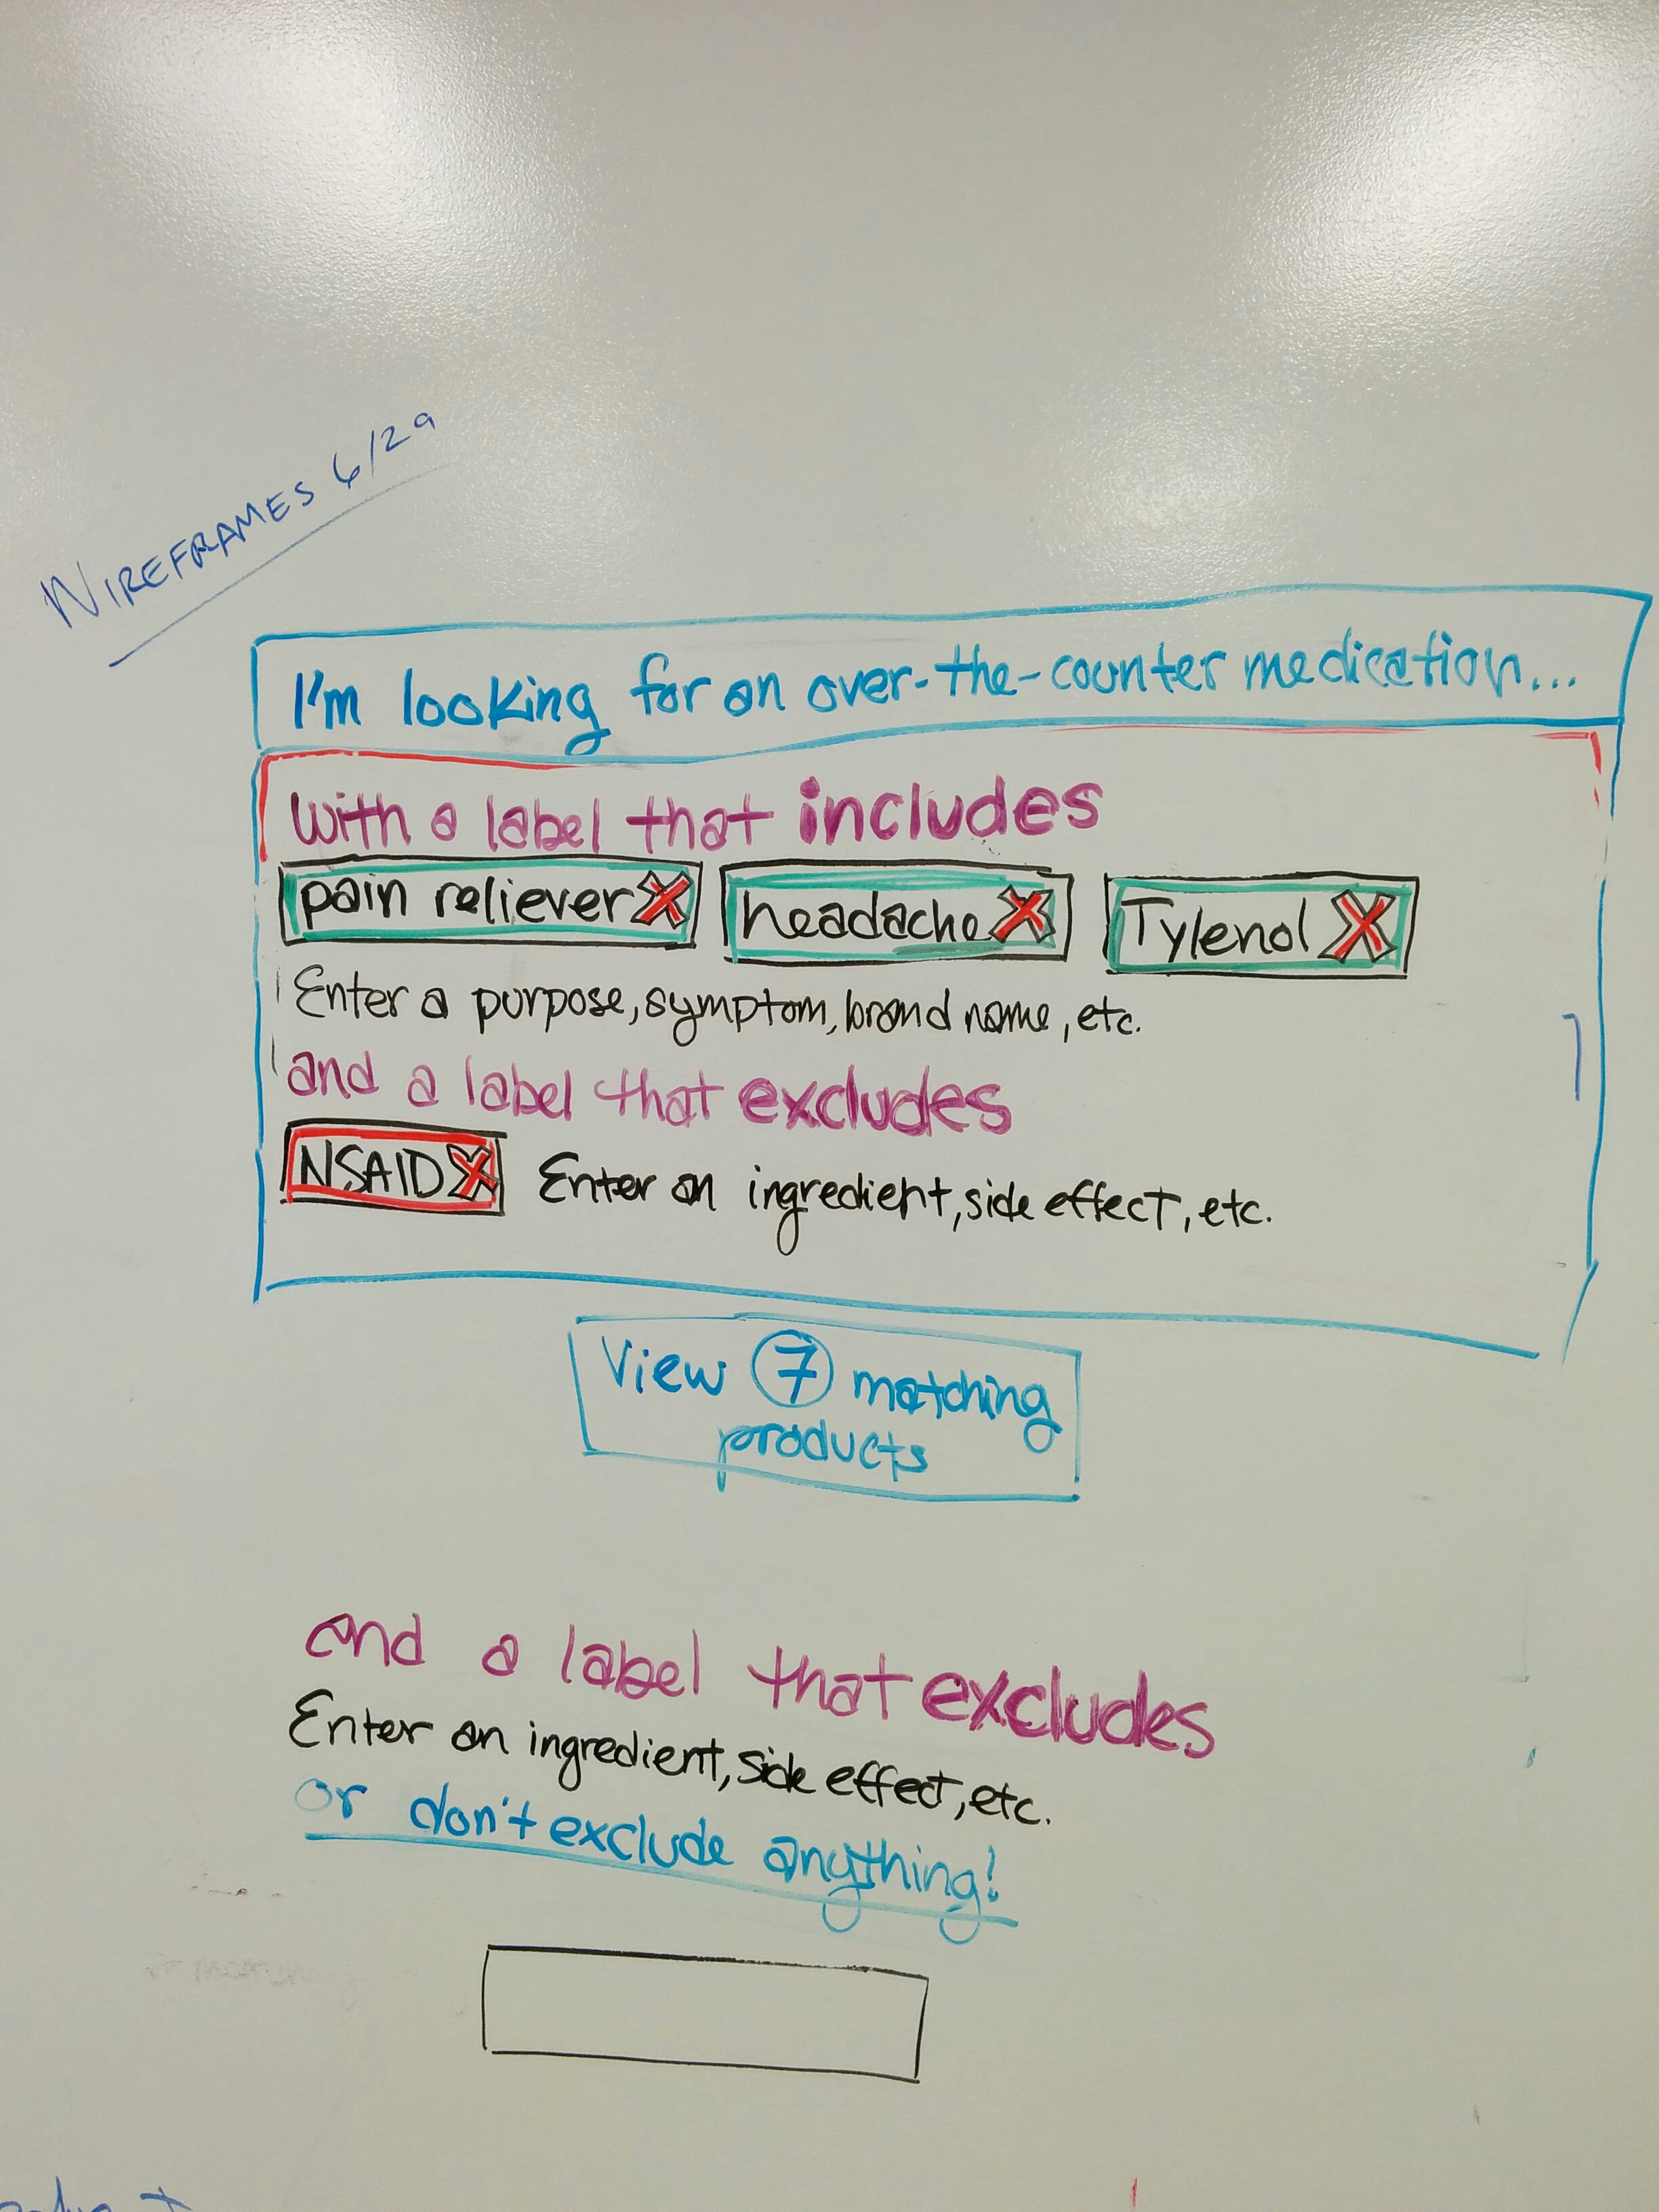 WIREFRAMES 6/29
I'm looking for an over-the-counter medication...
with a label that includes
pain reliever X headache X Tylenol X
Enter a purpose, symptom, brand name, etc.
and a label that excludes
NSAID X Enter an ingredient, side effect, etc.
View 7 matching
products
and a label that excludes
Enter an ingredient, side effect, etc.
or don't exclude anything!